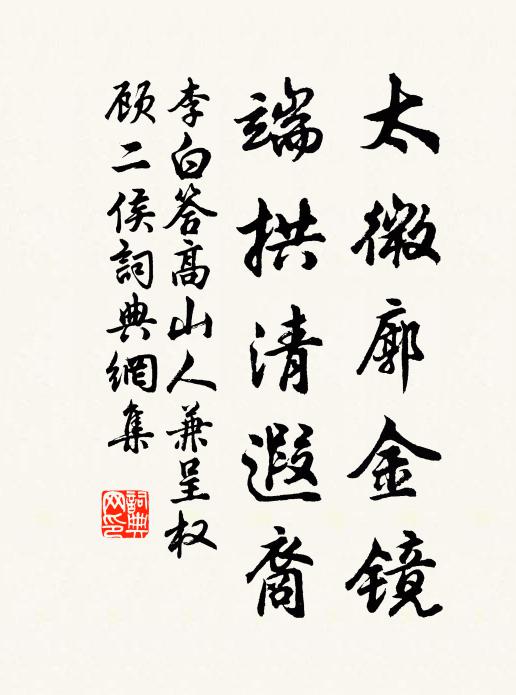 太微廓金镜
端拱清遐裔
李白答高山人兼呈权
顾二侯詞典網集
詞典网印